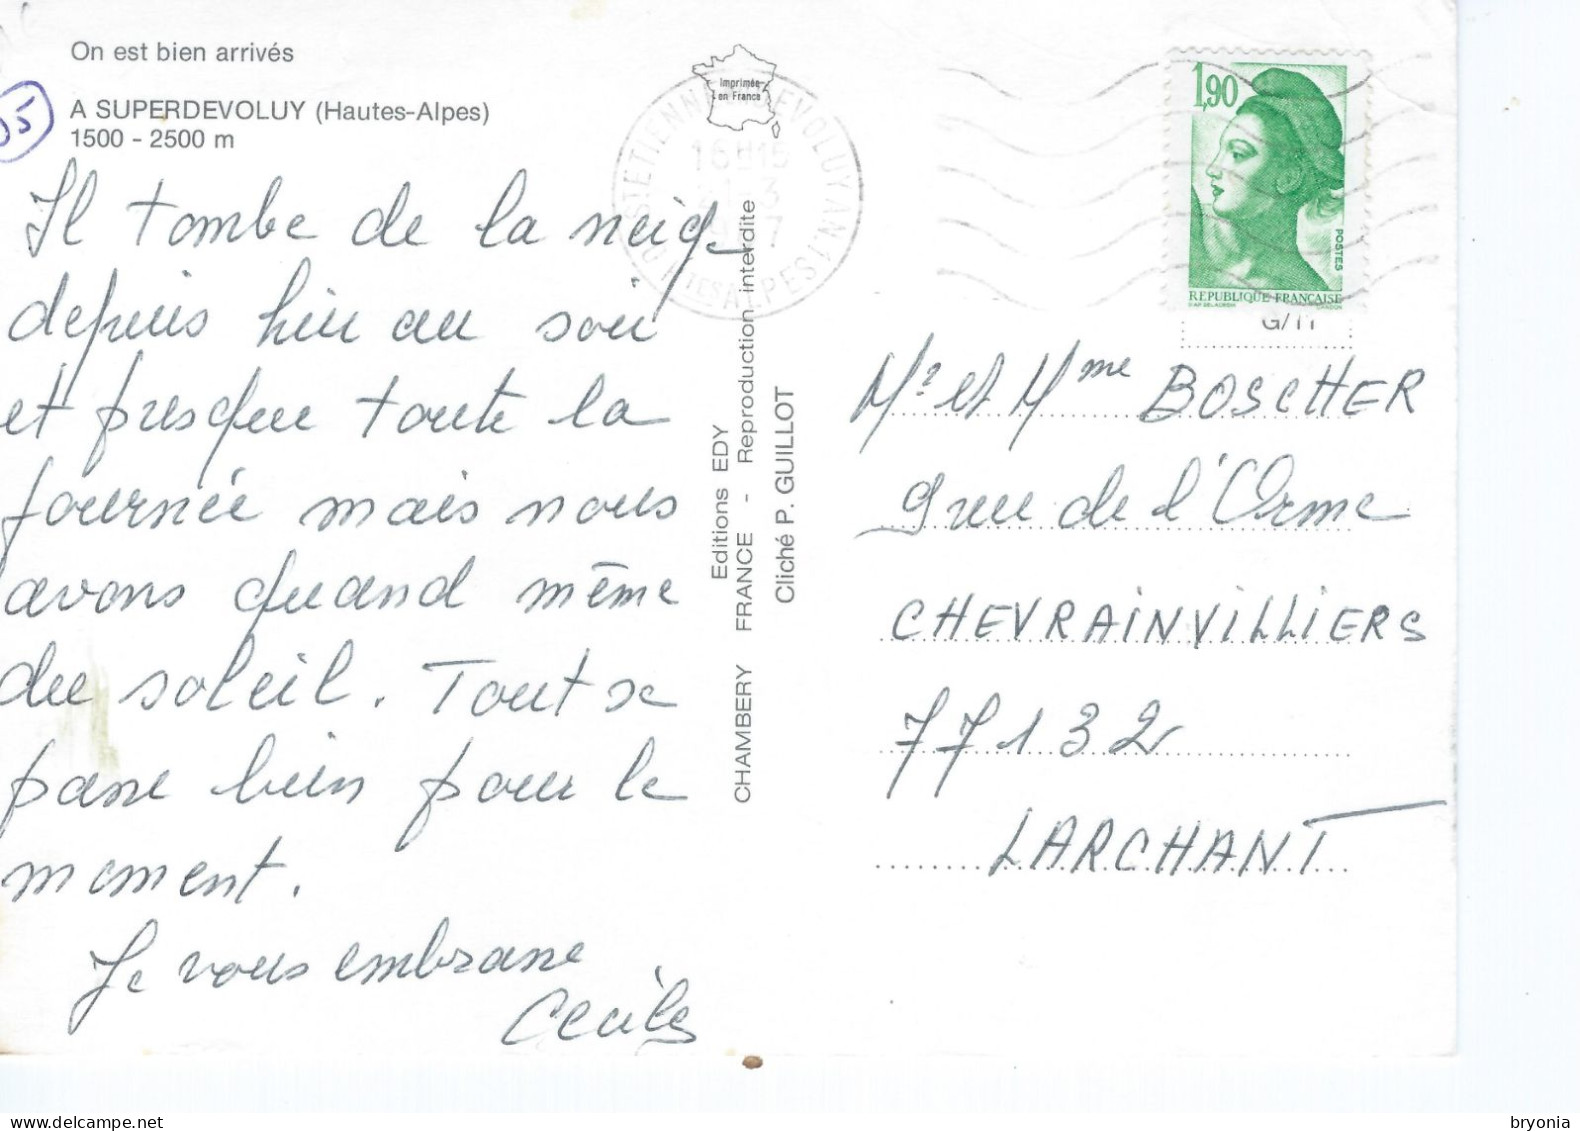 On est bien arrivés
A SUPERDEVOLUY (Hautes-Alpes)
1500 - 2500 m
Il tombe de la neige
depuis hier au soir
et presque toute la
journée mais nous
avons quand même
du soleil. Tout se
passe bien pour le
moment.
Je vous embrasse
Cécile
Imprimée
en France
Editions EDY
CHAMBERY FRANCE - Reproduction interdite
Cliché P. GUILLOT
ST ETIENNE EN DEVOLUY ANT
16H15
HTES ALPES
1,90
POSTES
REPUBLIQUE FRANCAISE
Mr et Mme BOSCHER
9 rue de l'Orme
CHEVRAINVILLIERS
77132
LARCHANT
bryonia